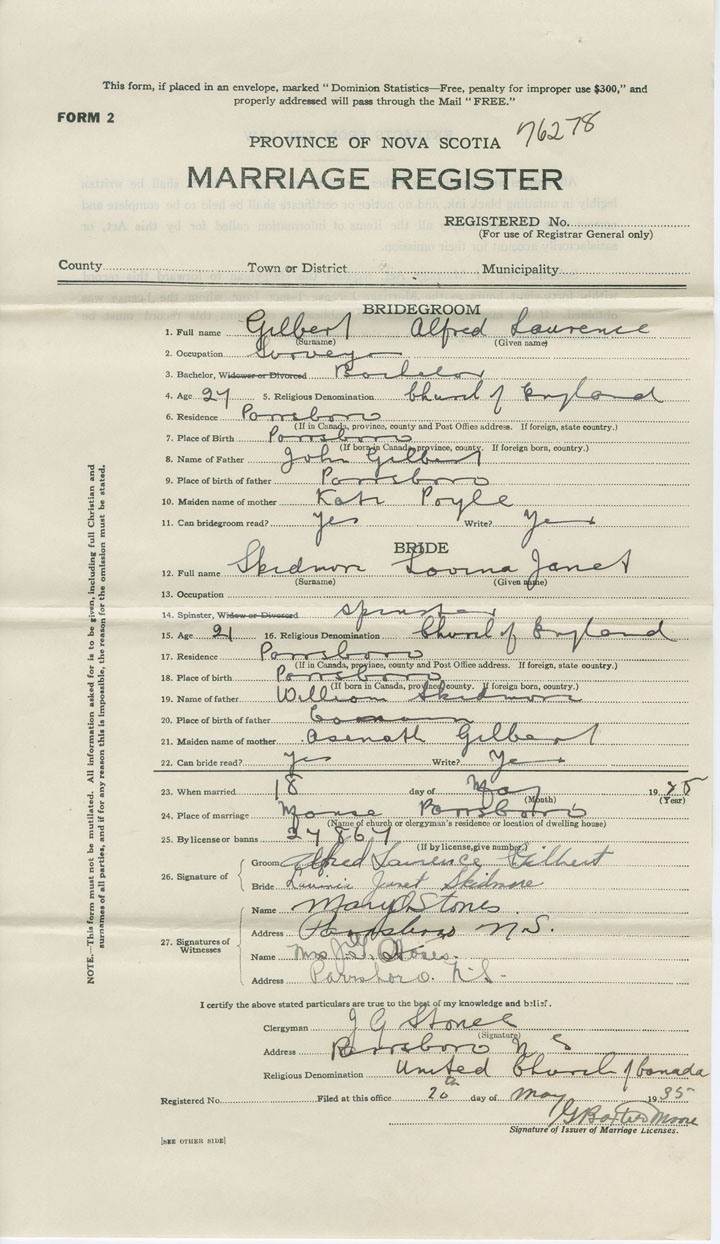 This form, if placed in an envelope, marked "Dominion Statistics—Free, penalty for improper use $300," and
properly addressed will pass through the Mail "FREE."
FORM 2
76278
PROVINCE OF NOVA SCOTIA
MARRIAGE REGISTER
REGISTERED No.
(For use of Registrar General only)
County Town or District Municipality
BRIDEGROOM
1. Full name Gilbert Alfred Laurence
(Surname) (Given name)
2. Occupation
3. Bachelor, Widower or Divorced Bachelor
4. Age 27 5. Religious Denomination Church of England
6. Residence Parrsboro
(If in Canada, province, county and Post Office address. If foreign, state country.)
7. Place of Birth Parrsboro
(If born in Canada, province, county. If foreign born, country.)
8. Name of Father John Gilbert
9. Place of birth of father Parrsboro
10. Maiden name of mother Kate
11. Can bridegroom read? Yes Write? Yes
BRIDE
12. Full name Skidmore Lovina Janet
(Surname) (Given name)
13. Occupation
14. Spinster, Widow or Divorced Spinster
15. Age 21 16. Religious Denomination Church of England
17. Residence Parrsboro
(If in Canada, province, county and Post Office address. If foreign, state country.)
18. Place of birth Parrsboro
(If born in Canada, province, county. If foreign born, country.)
19. Name of father William Skidmore
20. Place of birth of father
21. Maiden name of mother Asenath Gilbert
22. Can bride read? Yes Write? Yes
23. When married 18 day of May 19
(Month) (Year)
24. Place of marriage Manse Parrsboro
(Name of church or clergyman's residence or location of dwelling house)
25. By license or banns 27867
(If by license, give number)
26. Signature of
Groom Alfred Laurence Gilbert
Bride Janet Skidmore
27. Signatures of Witnesses
Name Mary Stones
Address Parrsboro N.S.
Name Mrs J.G. Stones.
Address Parrsboro. N.S.
I certify the above stated particulars are true to the best of my knowledge and belief.
Clergyman J G Stones
(Signature)
Address Parrsboro N S
Religious Denomination United Church of Canada
Registered No. Filed at this office 20th day of May 1935
G Baxter Moore
Signature of Issuer of Marriage Licenses.
[SEE OTHER SIDE]
NOTE.—This form must not be mutilated. All information asked for is to be given, including full Christian and
surnames of all parties, and if for any reason this is impossible, the reason for the omission must be stated.